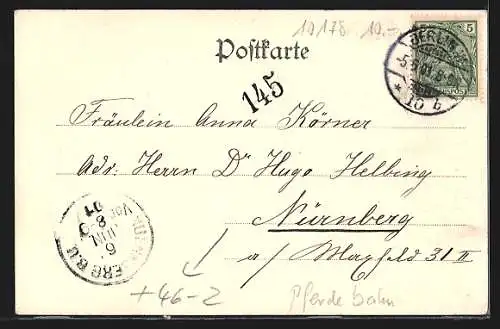 10178 10.-
Postkarte
5
BERLIN
-5.6.01. 8-9
* 16 b.
145
Fräulein Anna Körner
Adr. Herrn Dr Hugo Helbing
Nürnberg
a/ Mayfeld 31 II
NUERNBERG B.U.
6. JUN
Vor. 8-9
01
+46-2
Pferdebahn